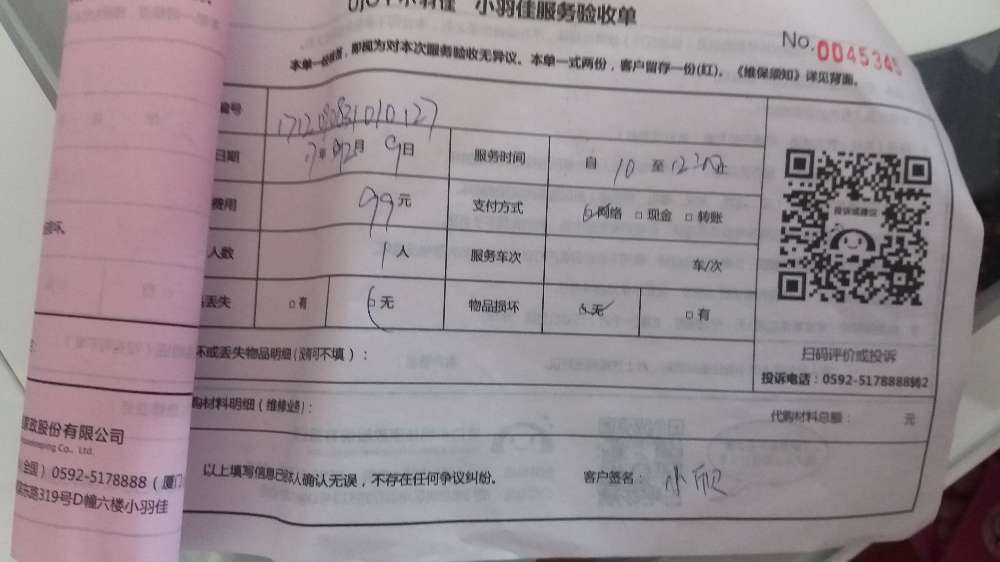 小羽佳 小羽佳服务验收单
No. 0045345
本单一份, 即视为对本次服务验收无异议。本单一式两份，客户留存一份(红)。《维保须知》详见背面。
编号
日期 17年 12月 9日 服务时间 自 10 至 止
费用 99元 支付方式 网络 □ 现金 □ 转账
人数 1人 服务车次 车/次
丢失 □ 有 无 物品损坏 无 □ 有
投诉或建议
扫码评价或投诉
投诉电话：0592-5178888转2
坏或丢失物品明细(没有可不填)：
购材料明细(维修业务)： 代购材料总额： 元
以上填写信息已经本人确认无误，不存在任何争议纠纷。 客户签名：
家政股份有限公司
Co., Ltd.
全国) 0592-5178888 (厦门
东路319号D幢六楼小羽佳